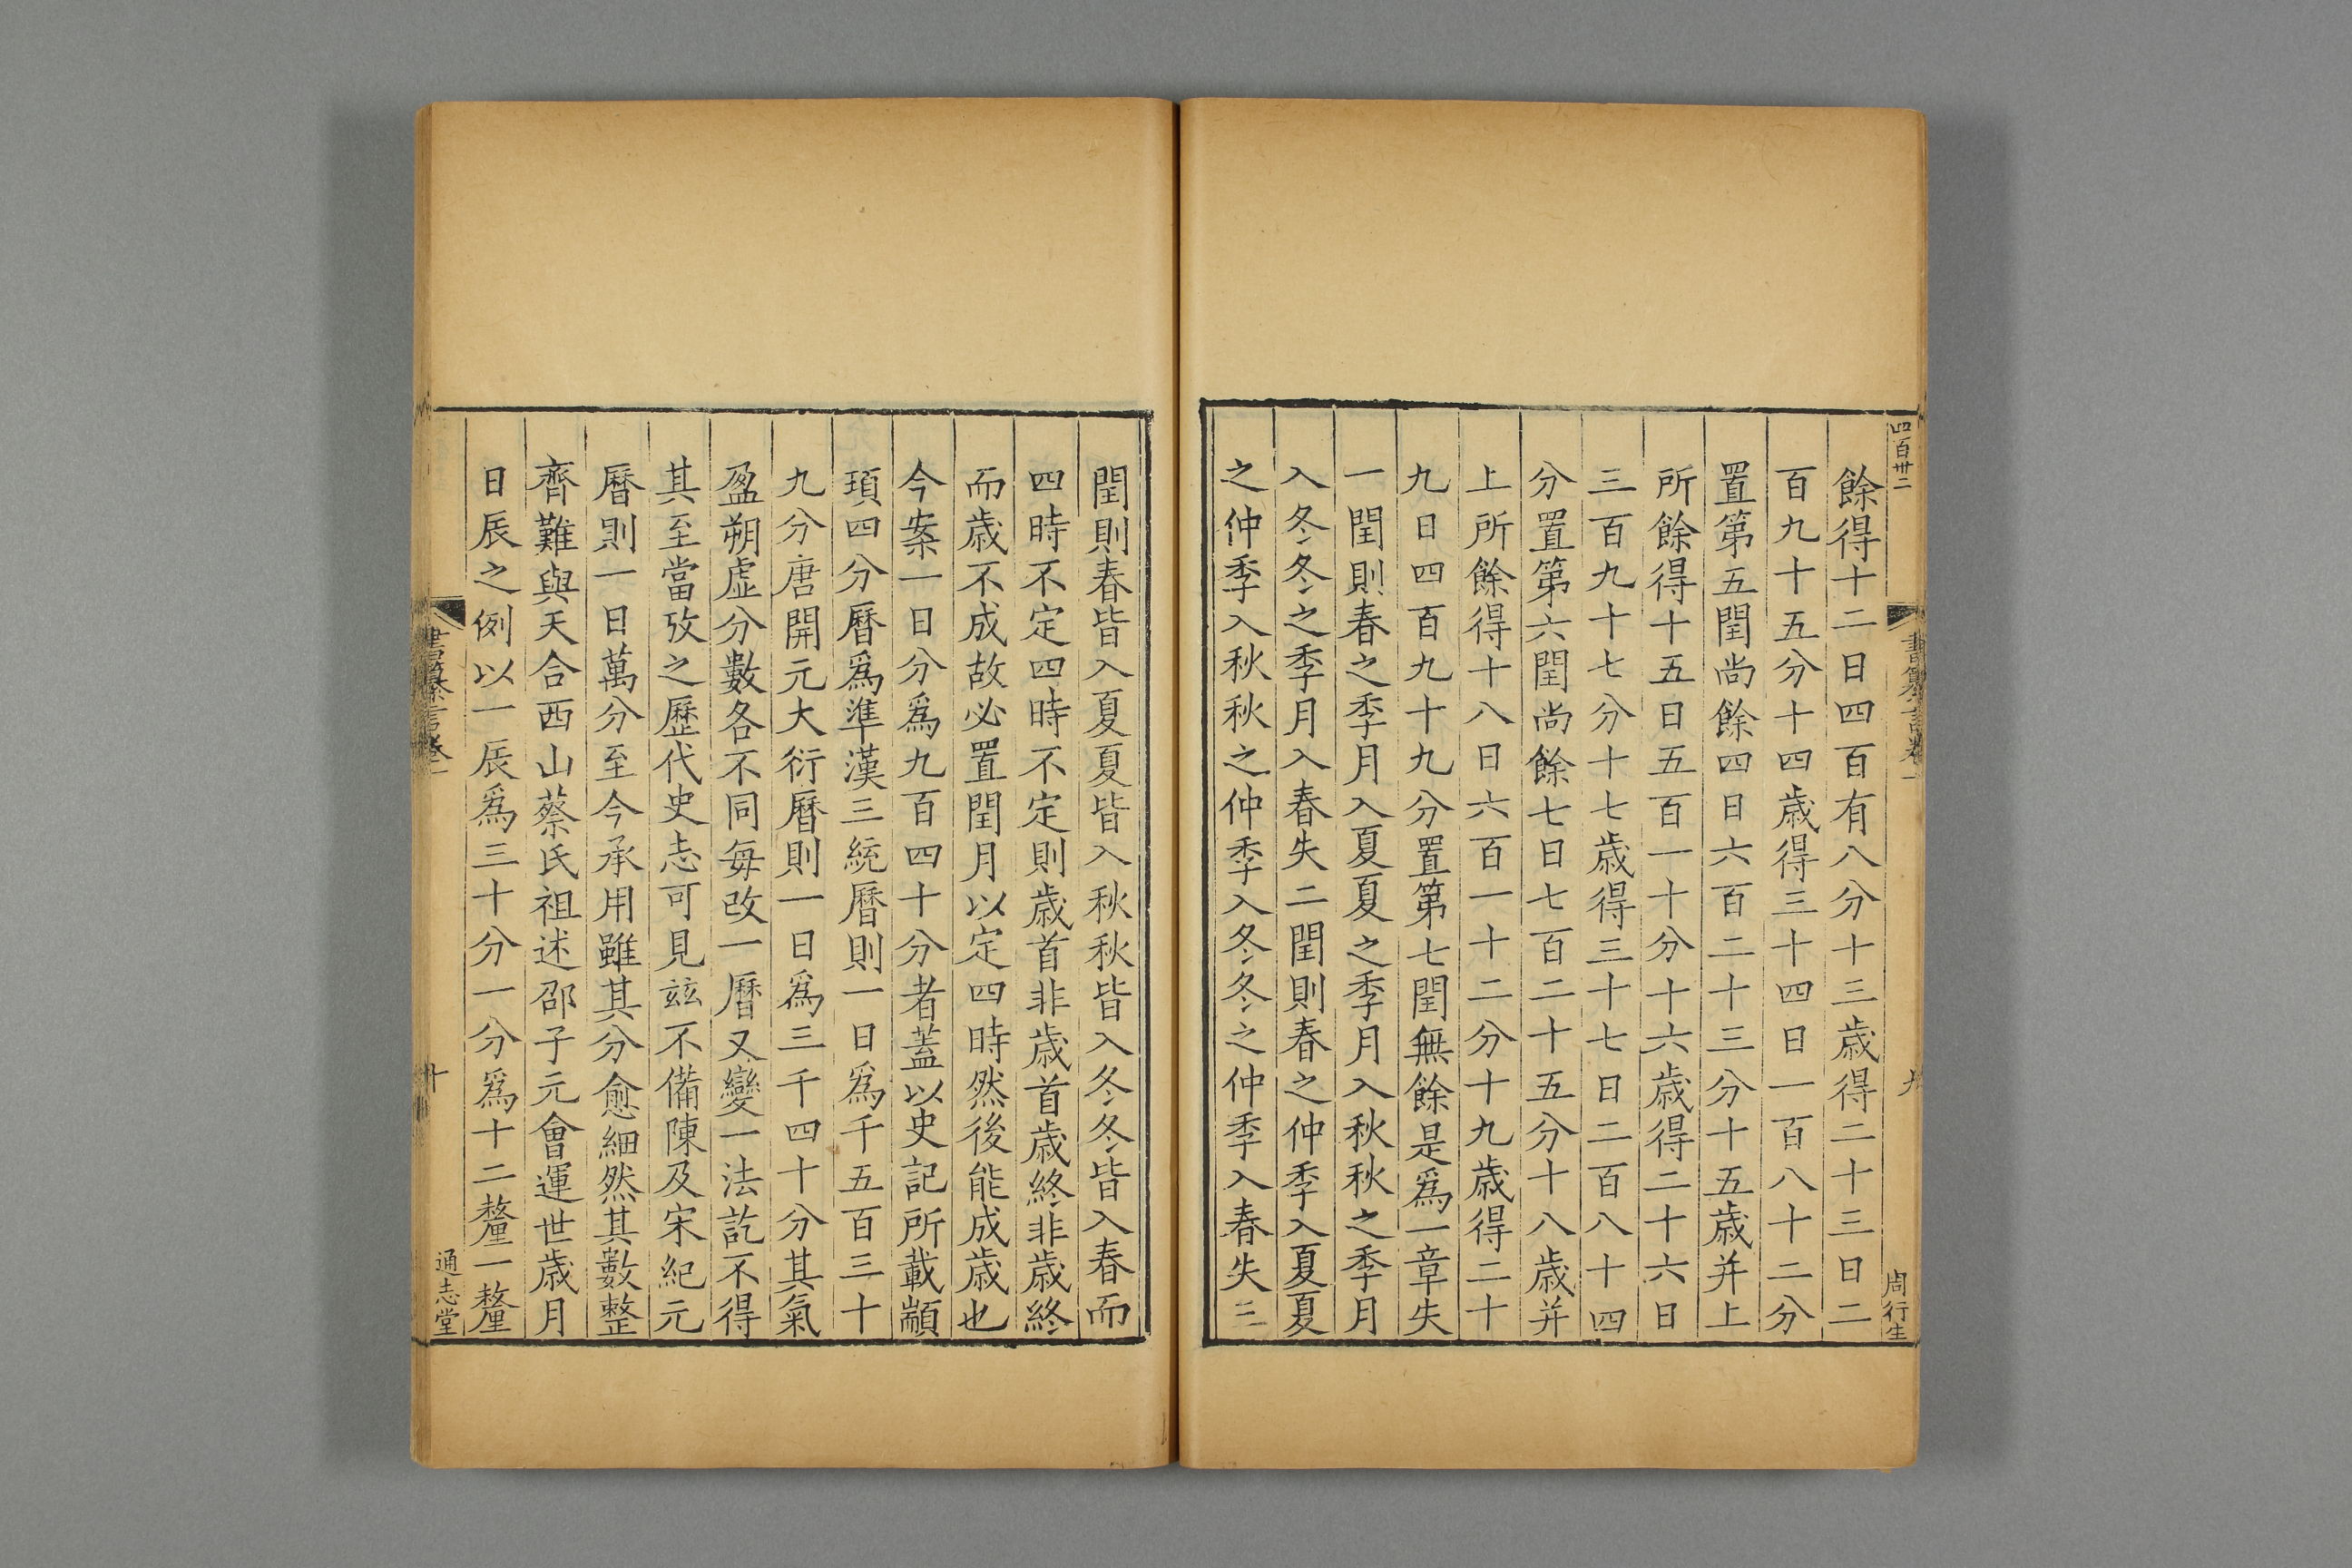 四百卅二
書纂言卷一
九
周行生
餘得十二日四百有八分十三歲得二十三日二
百九十五分十四歲得三十四日一百八十二分
置第五閏尚餘四日六百二十三分十五歲并上
所餘得十五日五百一十分十六歲得二十六日
三百九十七分十七歲得三十七日二百八十四
分置第六閏尚餘七日七百二十五分十八歲并
上所餘得十八日六百一十二分十九歲得二十
九日四百九十九分置第七閏無餘是爲一章失
一閏則春之季月入夏夏之季月入秋秋之季月
入冬冬之季月入春失二閏則春之仲季入夏夏
之仲季入秋秋之仲季入冬冬之仲季入春失三
閏則春皆入夏夏皆入秋秋皆入冬冬皆入春而
四時不定四時不定則歲首非歲首歲終非歲終
而歲不成故必置閏月以定四時然後能成歲也
今案一日分爲九百四十分者蓋以史記所載顓
頊四分曆爲準漢三統曆則一日爲千五百三十
九分唐開元大衍曆則一日爲三千四十分其氣
盈朔虛分數各不同每改一曆又變一法訖不得
其至當攷之歷代史志可見玆不備陳及宋紀元
曆則一日萬分至今承用雖其分愈細然其數整
齊難與天合西山蔡氏祖述邵子元會運世歲月
日辰之例以一辰爲三十分一分爲十二釐一釐
書纂言卷一
十
通志堂